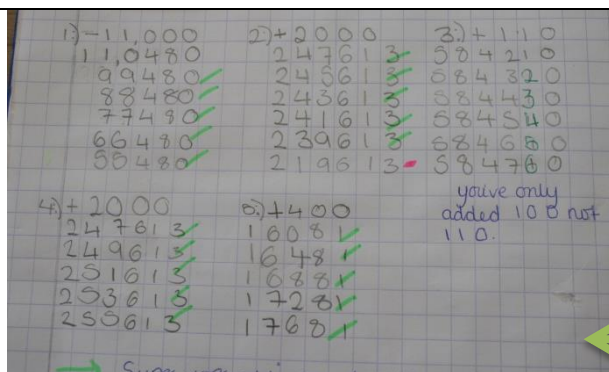 1.) -11,000
11,0480
99480
88480
77480
66480
55480
2.) +2000
247613
245613
243613
241613
239613
219613
3.) +110
584210
584320
584430
584540
584650
584760
youve only
added 100 not
110.
4.) +2000
247613
249613
251613
253613
255613
5.) +400
16081
16481
16881
17281
17681